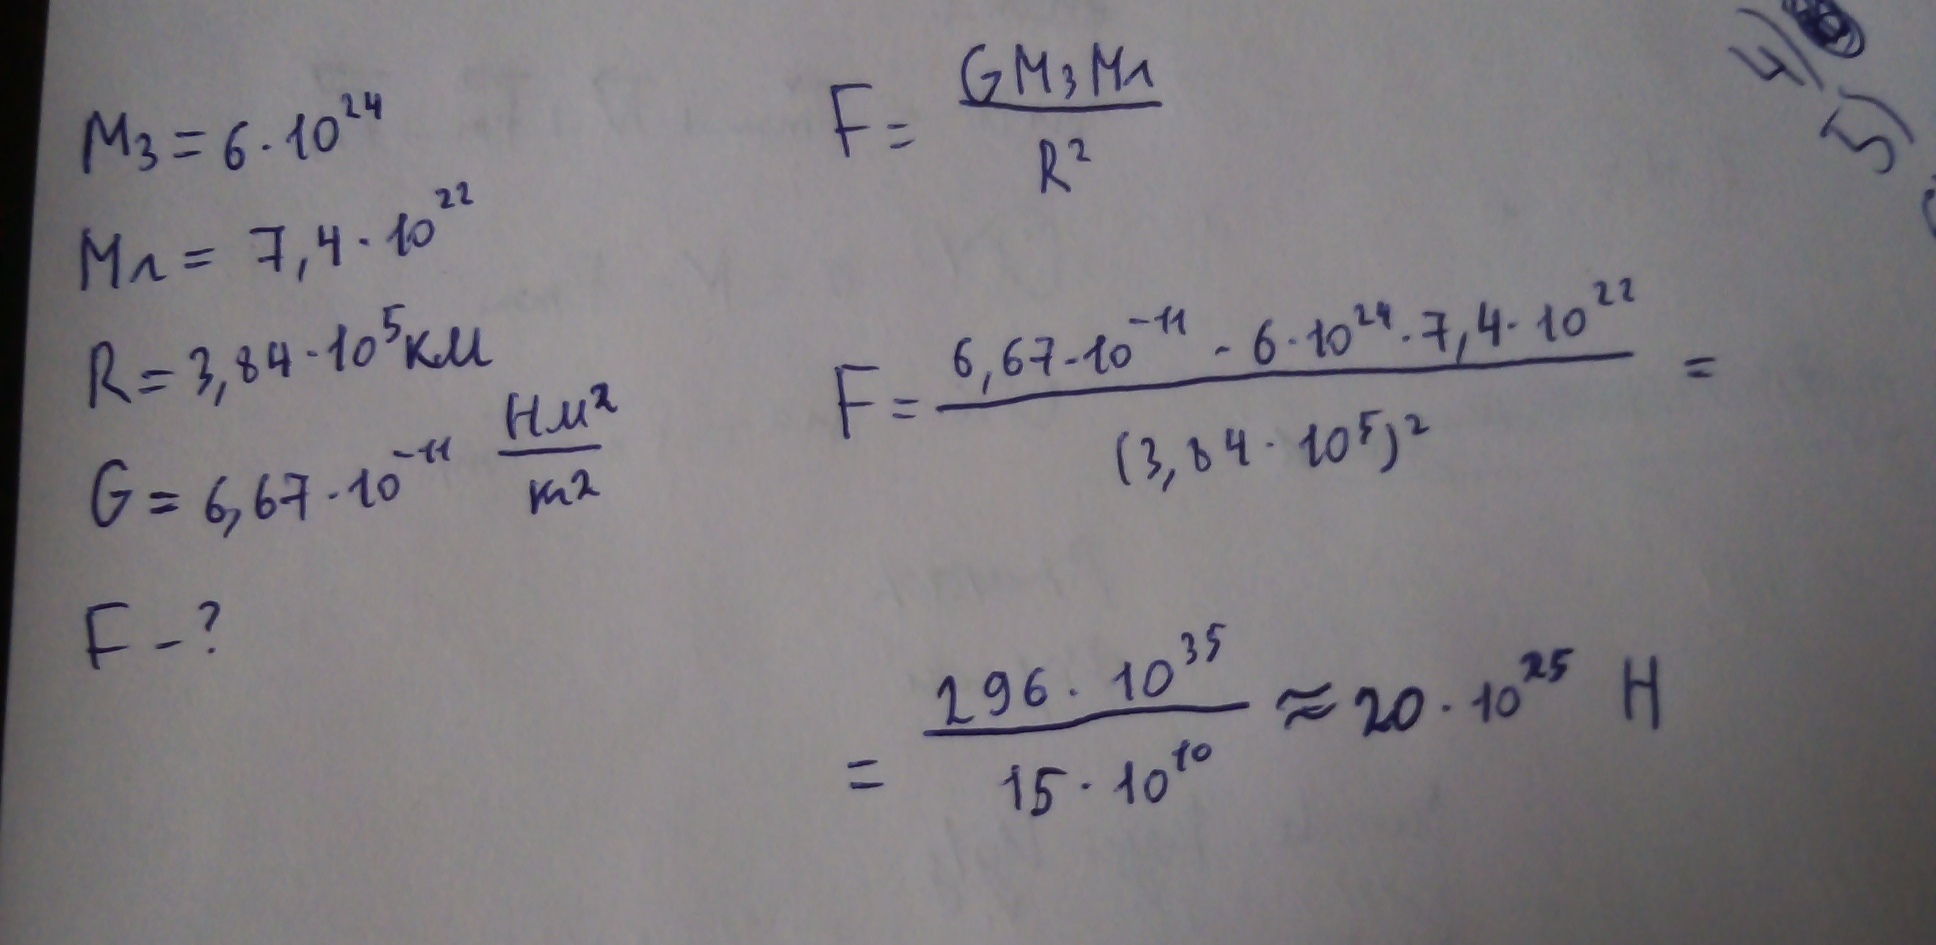 Mз = 6·10²⁴
Mл = 7,4·10²²
R = 3,84·10⁵км
G = 6,67·10⁻¹¹ Нм²/кг²
F - ?
F = GMзMл/R²
F = 6,67·10⁻¹¹·6·10²⁴·7,4·10²²/(3,84·10⁵)² =
= 296·10³⁵/15·10¹⁰ ≈ 20·10²⁵ Н
4)
5)